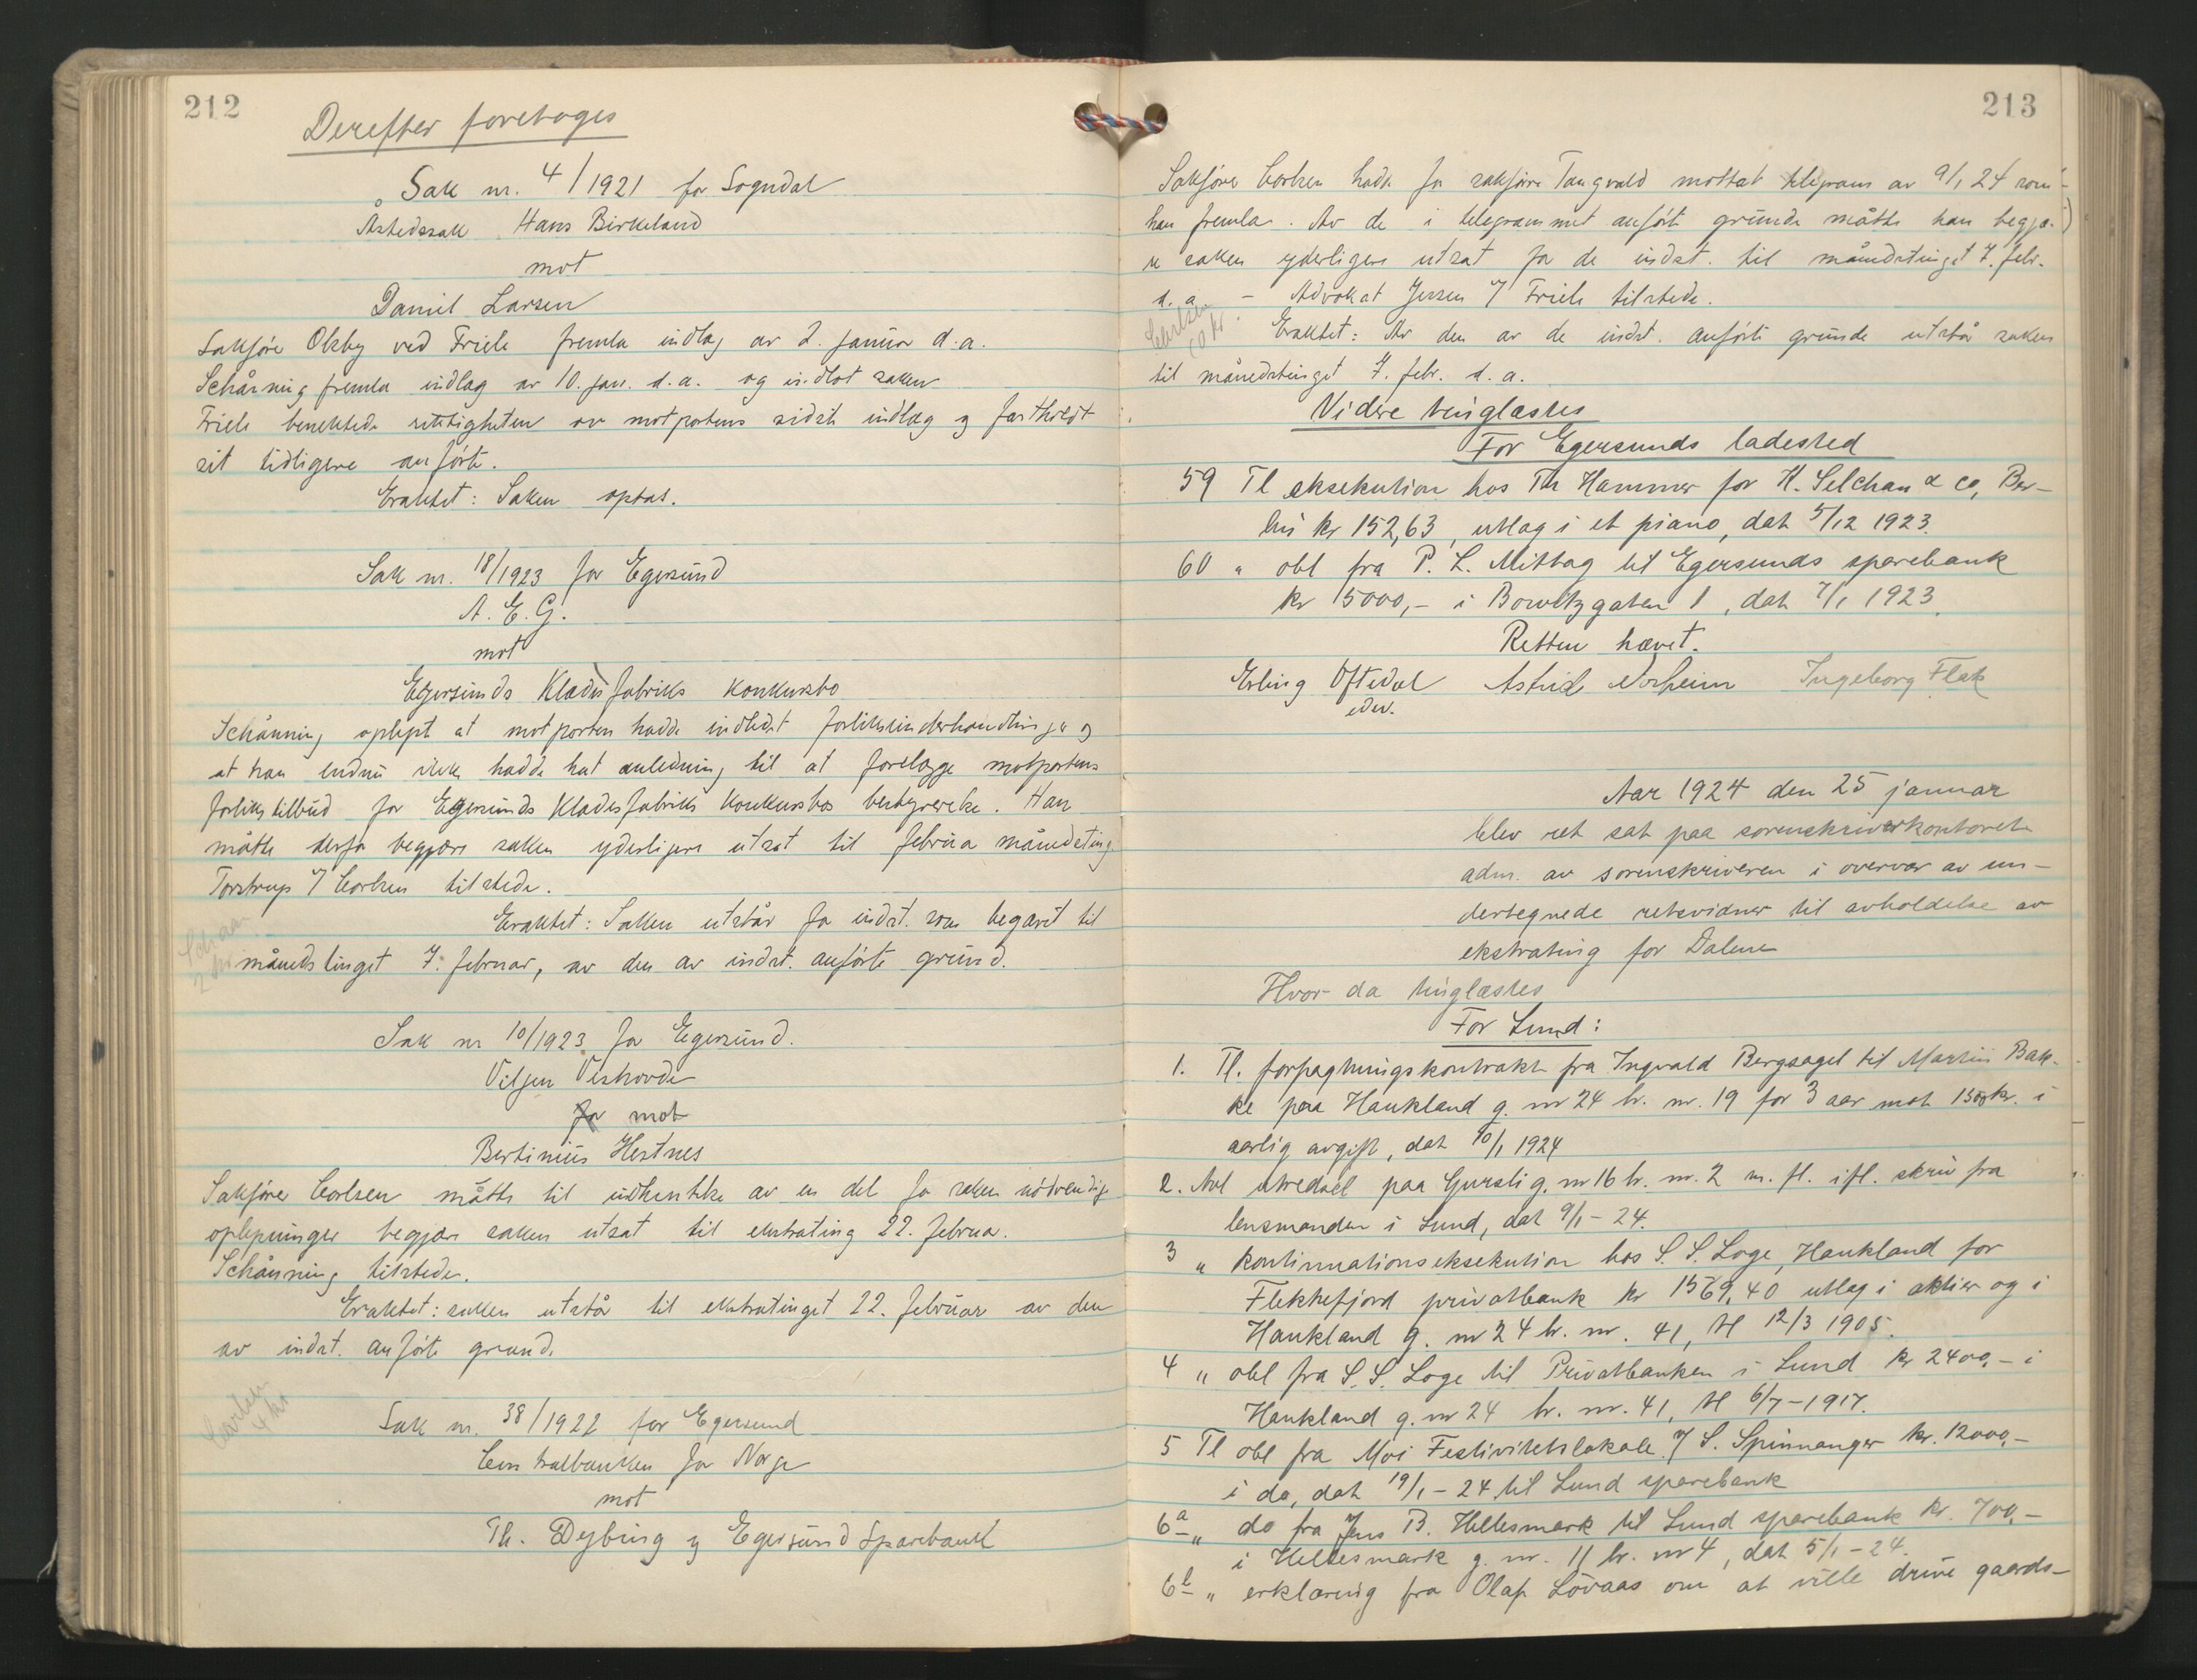 212
Derefter foretoges
Sak nr. 4/1921 for Sogndal
Åstedssak Hans Birkeland
mot
Daniel Larsen
Sakfører Olsby ved Friele fremla indlæg av 2. januar d.a.
Schånning fremla indlæg av 10. jan. d.a. og indlot saken
Friele benektede rettigheten av motpartens sidste indlæg og fastholdt
sit tidligere anførte.
Eraktet: Saken optas.
Sak nr. 18/1923 for Egersund
A. E. G.
mot
Egersunds Klædesfabriks konkursbo
Schånning oplyst at motparten hadde indledet forliksunderhandlinger og
at han endnu ikke hadde hat anledning til at forelægge motpartens
forlikstilbud for Egersunds Klædesfabriks konkursbos bestyrerelse. Han
måtte derfor begjære saken yderligere utsat til februar månedsting
Torstrup f Carlsen tilstede.
Eraktet: Saken utstår for indst. som begært til
månedstinget 7. februar, av den av indst. anførte grund.
Sak nr 10/1923 for Egersund.
Viljen Veshovde
for mot
Bertinius Hestnes
Sakfører Carlsen måtte til indhentelse av en del for saken nødvendige
oplysninger begjære saken utsat til ekstrating 22. februar.
Schånning tilstede.
Eraktet: saken utstår til ekstratinget 22. februar av den
av indst. anførte grund.
Carlsen
4 kr
Sak nr. 38/1922 for Egersund
Centralbanken for Norge
mot
Th. Dybing og Egersund Sparebank
213
Sakfører Carlsen hadde for sakfører Tangvald mottat telegram av 9/1 24 som
han fremla. Av de i telegrammet anførte grunde måtte han begjæ-
re saken yderligere utsat for de indst. til månedstinget 7. febr.
d. a. – Advokat Jessen f Friele tilstede.
Carlsen
10 kr.
Eraktet: Av den av de indst. anførte grunde utstår saken
til månedstinget 7. febr. d. a.
Videre tinglæstes
For Egersunds ladested
59 Tl eksekution hos Th Hammer for H. Selchau & co, Ber-
lin kr 152,63, utlæg i et piano, dat 5/12 1923.
60 " obl fra P. L. Mittag til Egersunds sparebank
kr 15000,- i Bowitzgaten 1, dat 7/1 1923.
Retten hævet.
Erling Oftedal Astrid Norheim Ingeborg Flak
edsv.
Aar 1924 den 25 januar
blev ret sat paa sorenskriverkontoret
adm. av sorenskriveren i overvær av un-
dertegnede retsvidner til avholdelse av
ekstrating for Dalene
Hvor da tinglæstes
For Lund:
1. Tl. forpagtningskontrakt fra Ingvald Bergsagel til Martin Bak-
ke paa Haukland g. nr 24 br. nr. 19 for 3 aar mot 150 kr. i
aarlig avgift, dat 10/1 1924
2. Avl utredsel paa Gursli g. nr 16 br. nr. 2 m. fl. ifl. skriv fra
lensmanden i Lund, dat 9/1 – 24.
3 " kontinuationseksekution hos S. S. Loge, Haukland for
Flekkefjord privatbank kr 1569,40 utlæg i aktier og i
Haukland g. nr 24 br. nr. 41, tl 12/3 1905.
4 " obl fra S. S. Loge til Privatbanken i Lund kr 2400,- i
Haukland g. nr 24 br. nr. 41, tl 6/7 – 1917.
5 Tl obl fra Moi Festivitetslokale f S. Spinnanger kr. 12000,-
i do, dat 19/1 – 24 til Lund sparebank
6a " do fra Jens B. Hellesmark til Lund sparebank kr. 700,-
i Hellesmark g. nr. 11 br. nr 4, dat 5/1 – 24.
6b " erklæring fra Olaf Løvaas om at ville drive gaards-